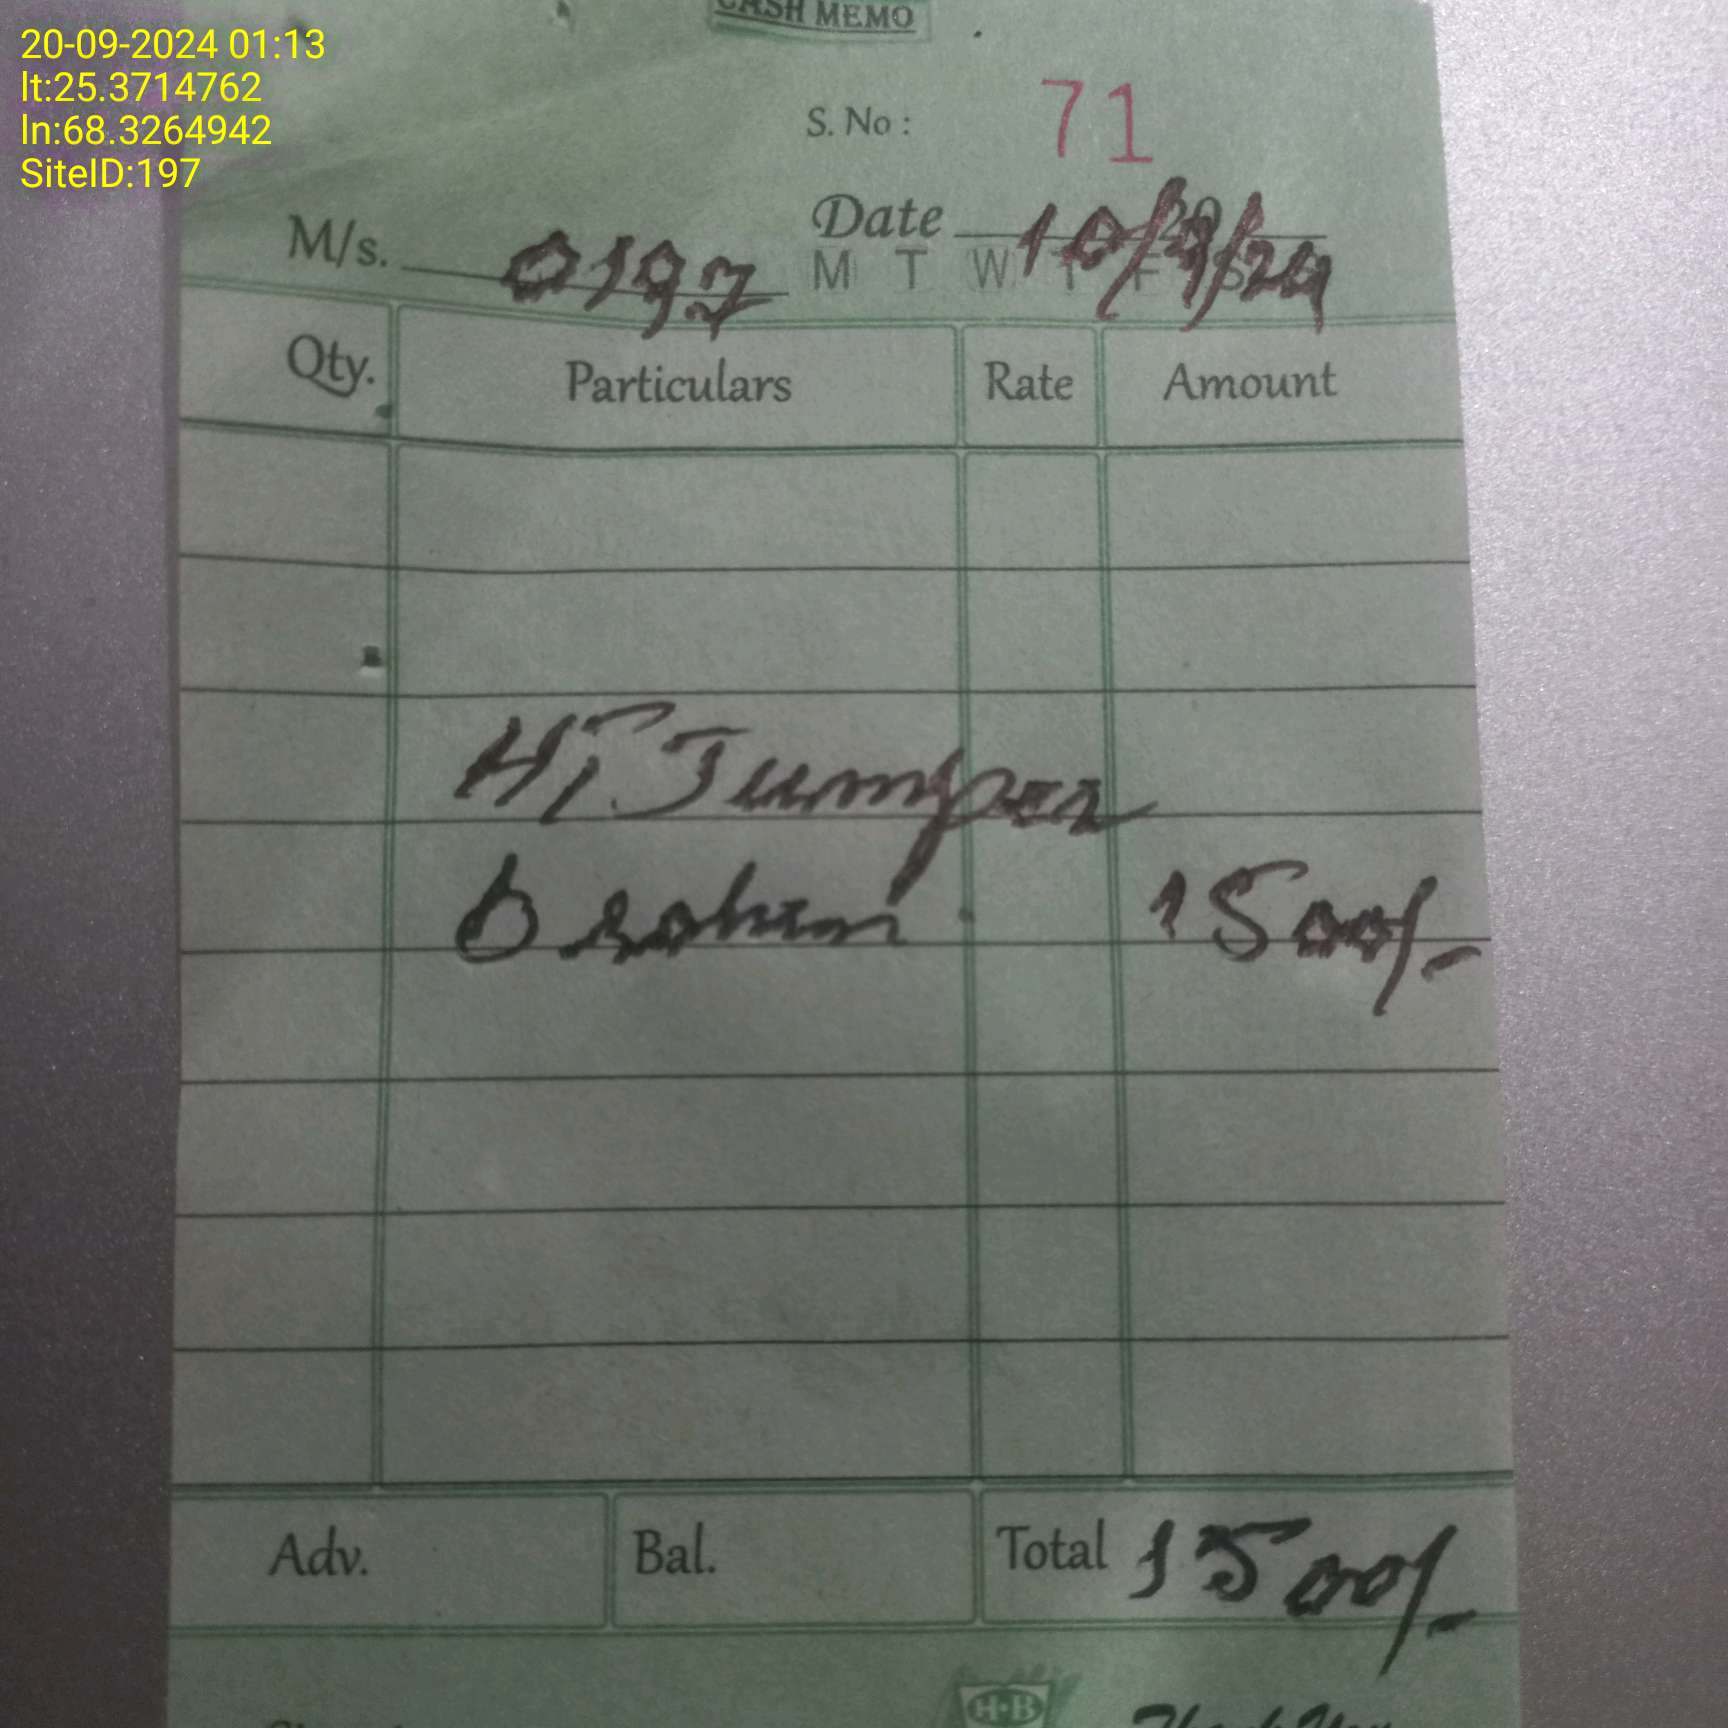 20-09-2024 01:13
lt:25.3714762
ln:68.3264942
SiteID:197
CASH MEMO
S. No : 71
Date 10/9/24
M/s. 0197
M T W T F S
Qty. Particulars Rate Amount
HT Jumper
1500/-
Adv. Bal. Total 1500/-
H·B
Thank You